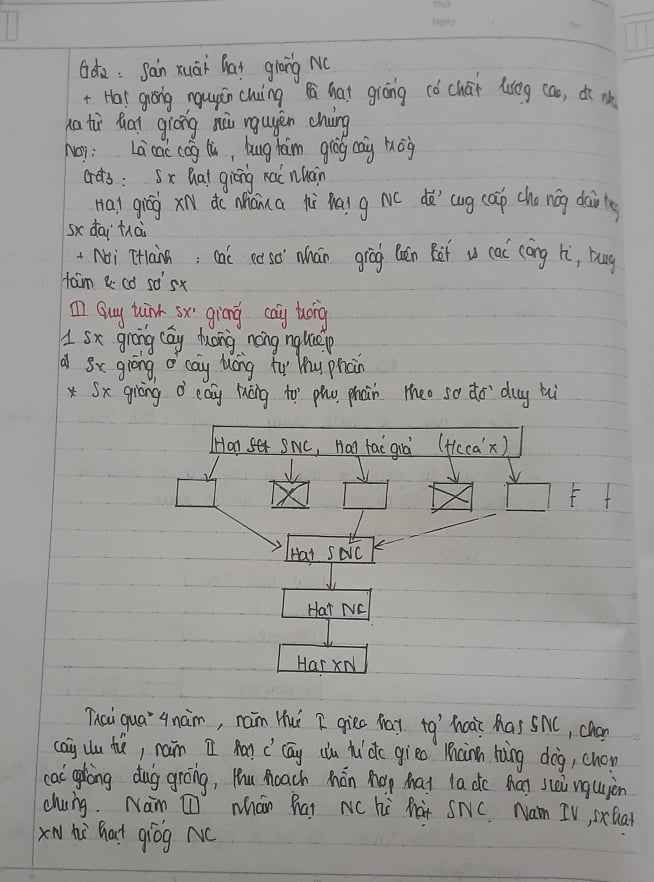 Gđ2: Sản xuất hạt giống NC
+ Hạt giống nguyên chủng là hạt giống có chất lượng cao, đc nhâ
ra từ hạt giống siêu nguyên chủng
Nơi: Là các côg ti, trug tâm giốg cây trồg
Gđ3: Sx hạt giống xác nhận
Hạt giốg XN đc nhân ra từ hạt g NC để cug cấp cho nôg dân
sx đại trà
+ Nơi THành: các cơ sở nhân giốg liên kết vs các công ti, trung
tâm & cơ sở sx
III Quy trình sx giống cây trồng
1 Sx giống cây trồng nông nghiệp
a) Sx giống ở cây trồng tự thụ phấn
* Sx giống ở cây trồng tự phụ phấn theo sơ đồ duy trì
Hạt SNC, Hạt tác giả (Hccá'x)
Hạt SNC
Hạt NC
Hạt XN
Trải qua 4 năm, năm thứ I gieo hạt tg' hoặc hạt SNC, chọn
cây ưu tú, năm II hạt c' cây ưu tú đc gieo thành từng dòg, chọn
các dòng đúg giống, thu hoạch hỗn hợp hạt ta đc hạt siêu nguyên
chủng. Năm III nhân hạt NC từ hạt SNC. Năm IV, sx hạt
XN từ hạt giốg NC